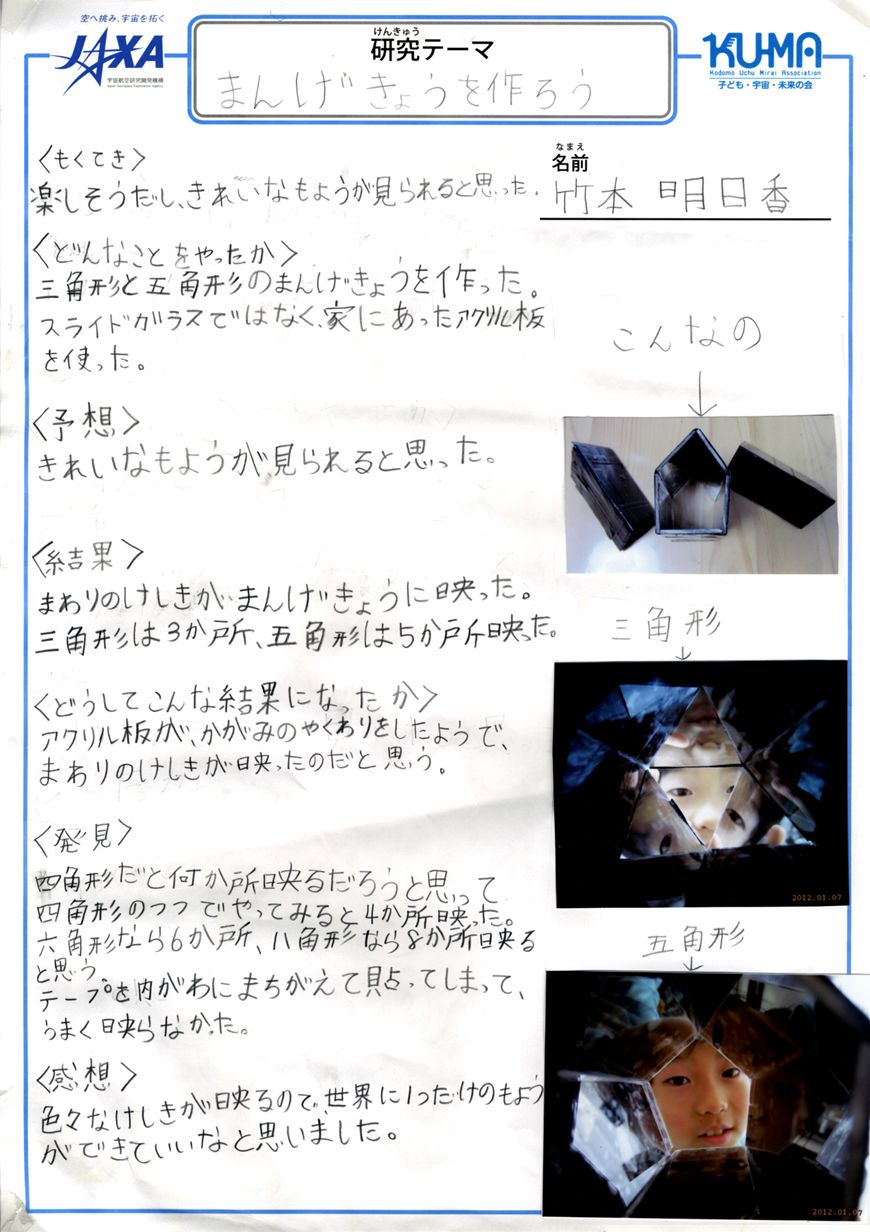 空へ挑み、宇宙を拓く
JAXA
宇宙航空研究開発機構
Japan Aerospace Exploration Agency
けんきゅう
研究テーマ
まんげきょうを作ろう
KU-MA
Kodomo Uchu Mirai Association
子ども・宇宙・未来の会
なまえ
名前
竹本 明日香
〈もくてき〉
楽しそうだし、きれいなもようが見られると思った。
〈どんなことをやったか〉
三角形と五角形のまんげきょうを作った。
スライドガラスではなく、家にあったアクリル板
を使った。
こんなの
〈予想〉
きれいなもようが見られると思った。
〈結果〉
まわりのけしきがまんげきょうに映った。
三角形は3か所、五角形は5か所映った。
三角形
〈どうしてこんな結果になったか〉
アクリル板が、かがみのやくわりをしたようで、
まわりのけしきが映ったのだと思う。
2012.01.07
〈発見〉
四角形だと何か所映るだろうと思って
四角形のつつでやってみると4か所映った。
六角形なら6か所、八角形なら8か所映る
と思う。
テープを内がわにまちがえて貼ってしまって、
うまく映らなかった。
五角形
〈感想〉
色々なけしきが映るので、世界に1つだけのもよう
ができていいなと思いました。
2012.01.07